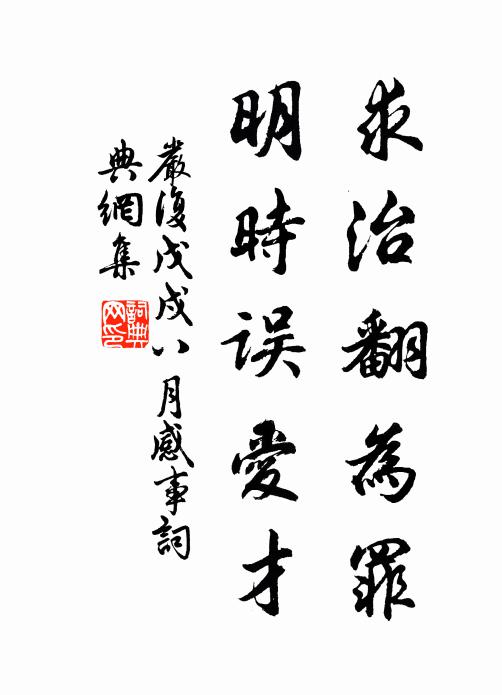 求治翻為罪
明時誤愛才
嚴復戊戌八月感事詞
典網集
詞典
网印